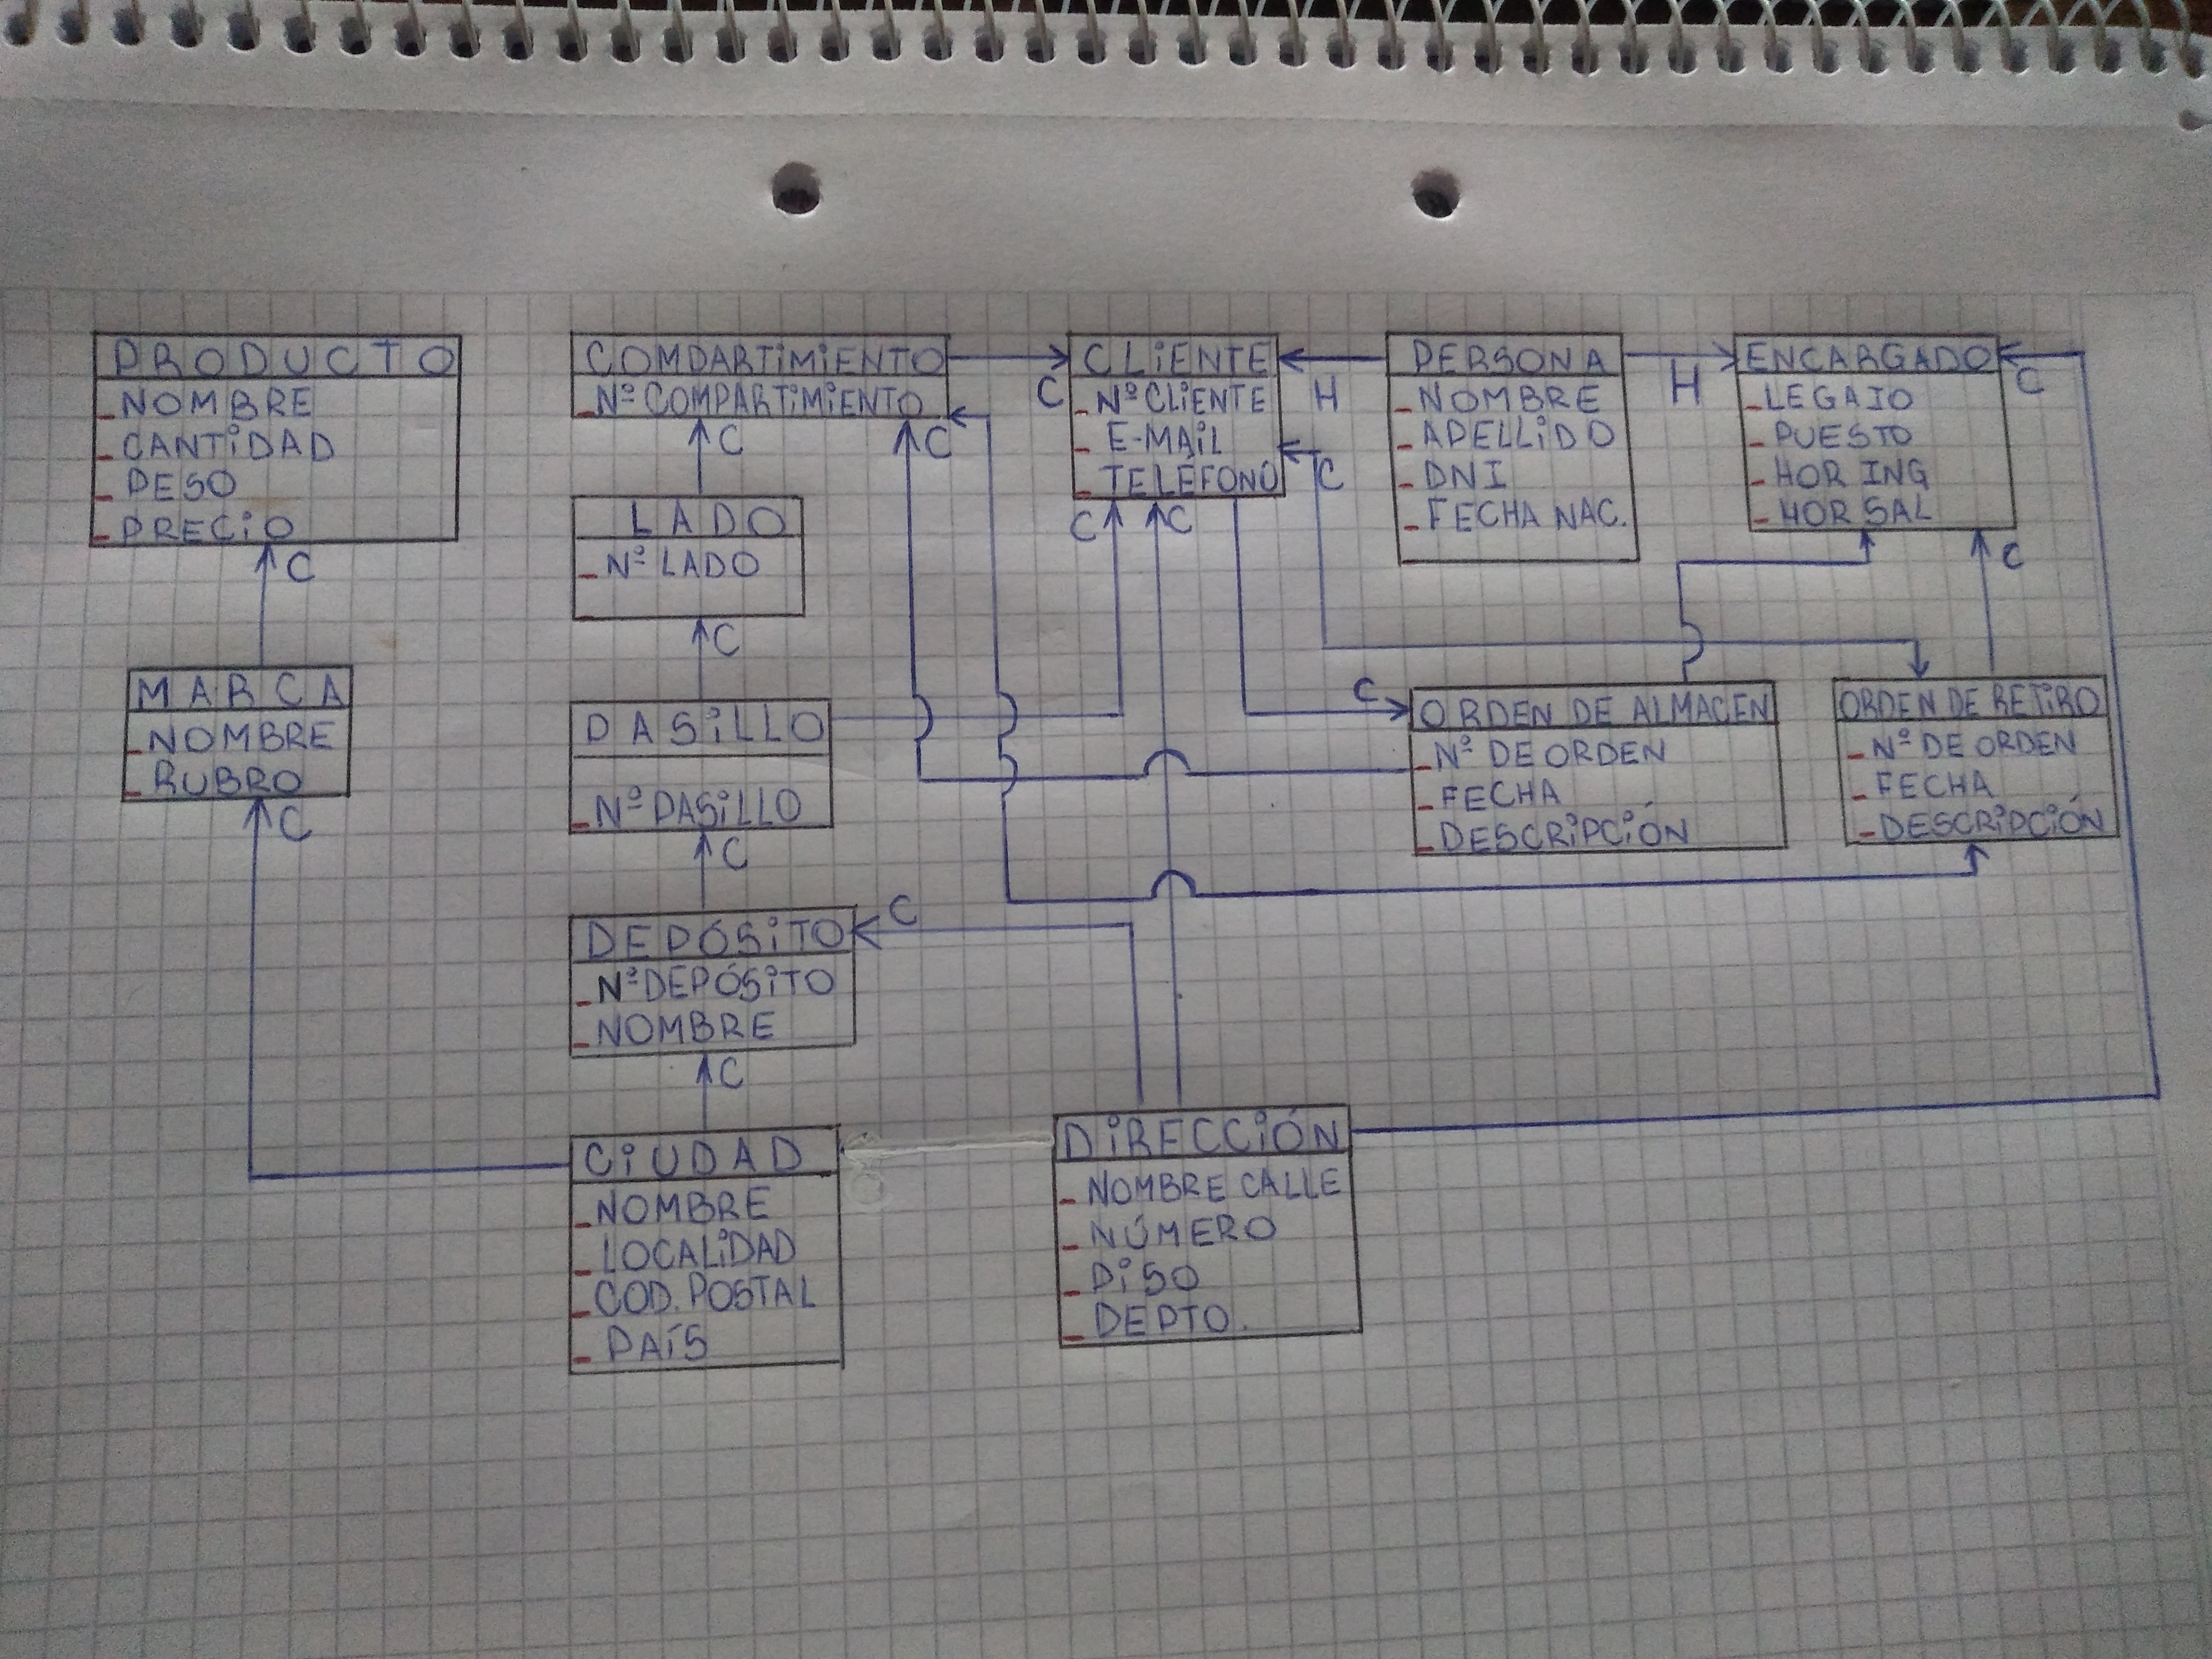 PRODUCTO
NOMBRE
CANTIDAD
PESO
PRECIO
C
MARCA
NOMBRE
RUBRO
C
COMPARTIMIENTO
Nº COMPARTIMIENTO
C
C
LADO
Nº LADO
C
PASILLO
Nº PASILLO
C
DEPÓSITO
Nº DEPÓSITO
NOMBRE
C
C
CIUDAD
NOMBRE
LOCALIDAD
COD. POSTAL
PAÍS
C
CLIENTE
Nº CLIENTE
E-MAIL
TELÉFONO
C
C
H
C
PERSONA
NOMBRE
APELLIDO
DNI
FECHA NAC.
H
ENCARGADO
LEGAJO
PUESTO
HOR ING
HOR SAL
C
C
C
ORDEN DE ALMACEN
Nº DE ORDEN
FECHA
DESCRIPCIÓN
ORDEN DE RETIRO
Nº DE ORDEN
FECHA
DESCRIPCIÓN
DIRECCIÓN
NOMBRE CALLE
NÚMERO
PISO
DEPTO.